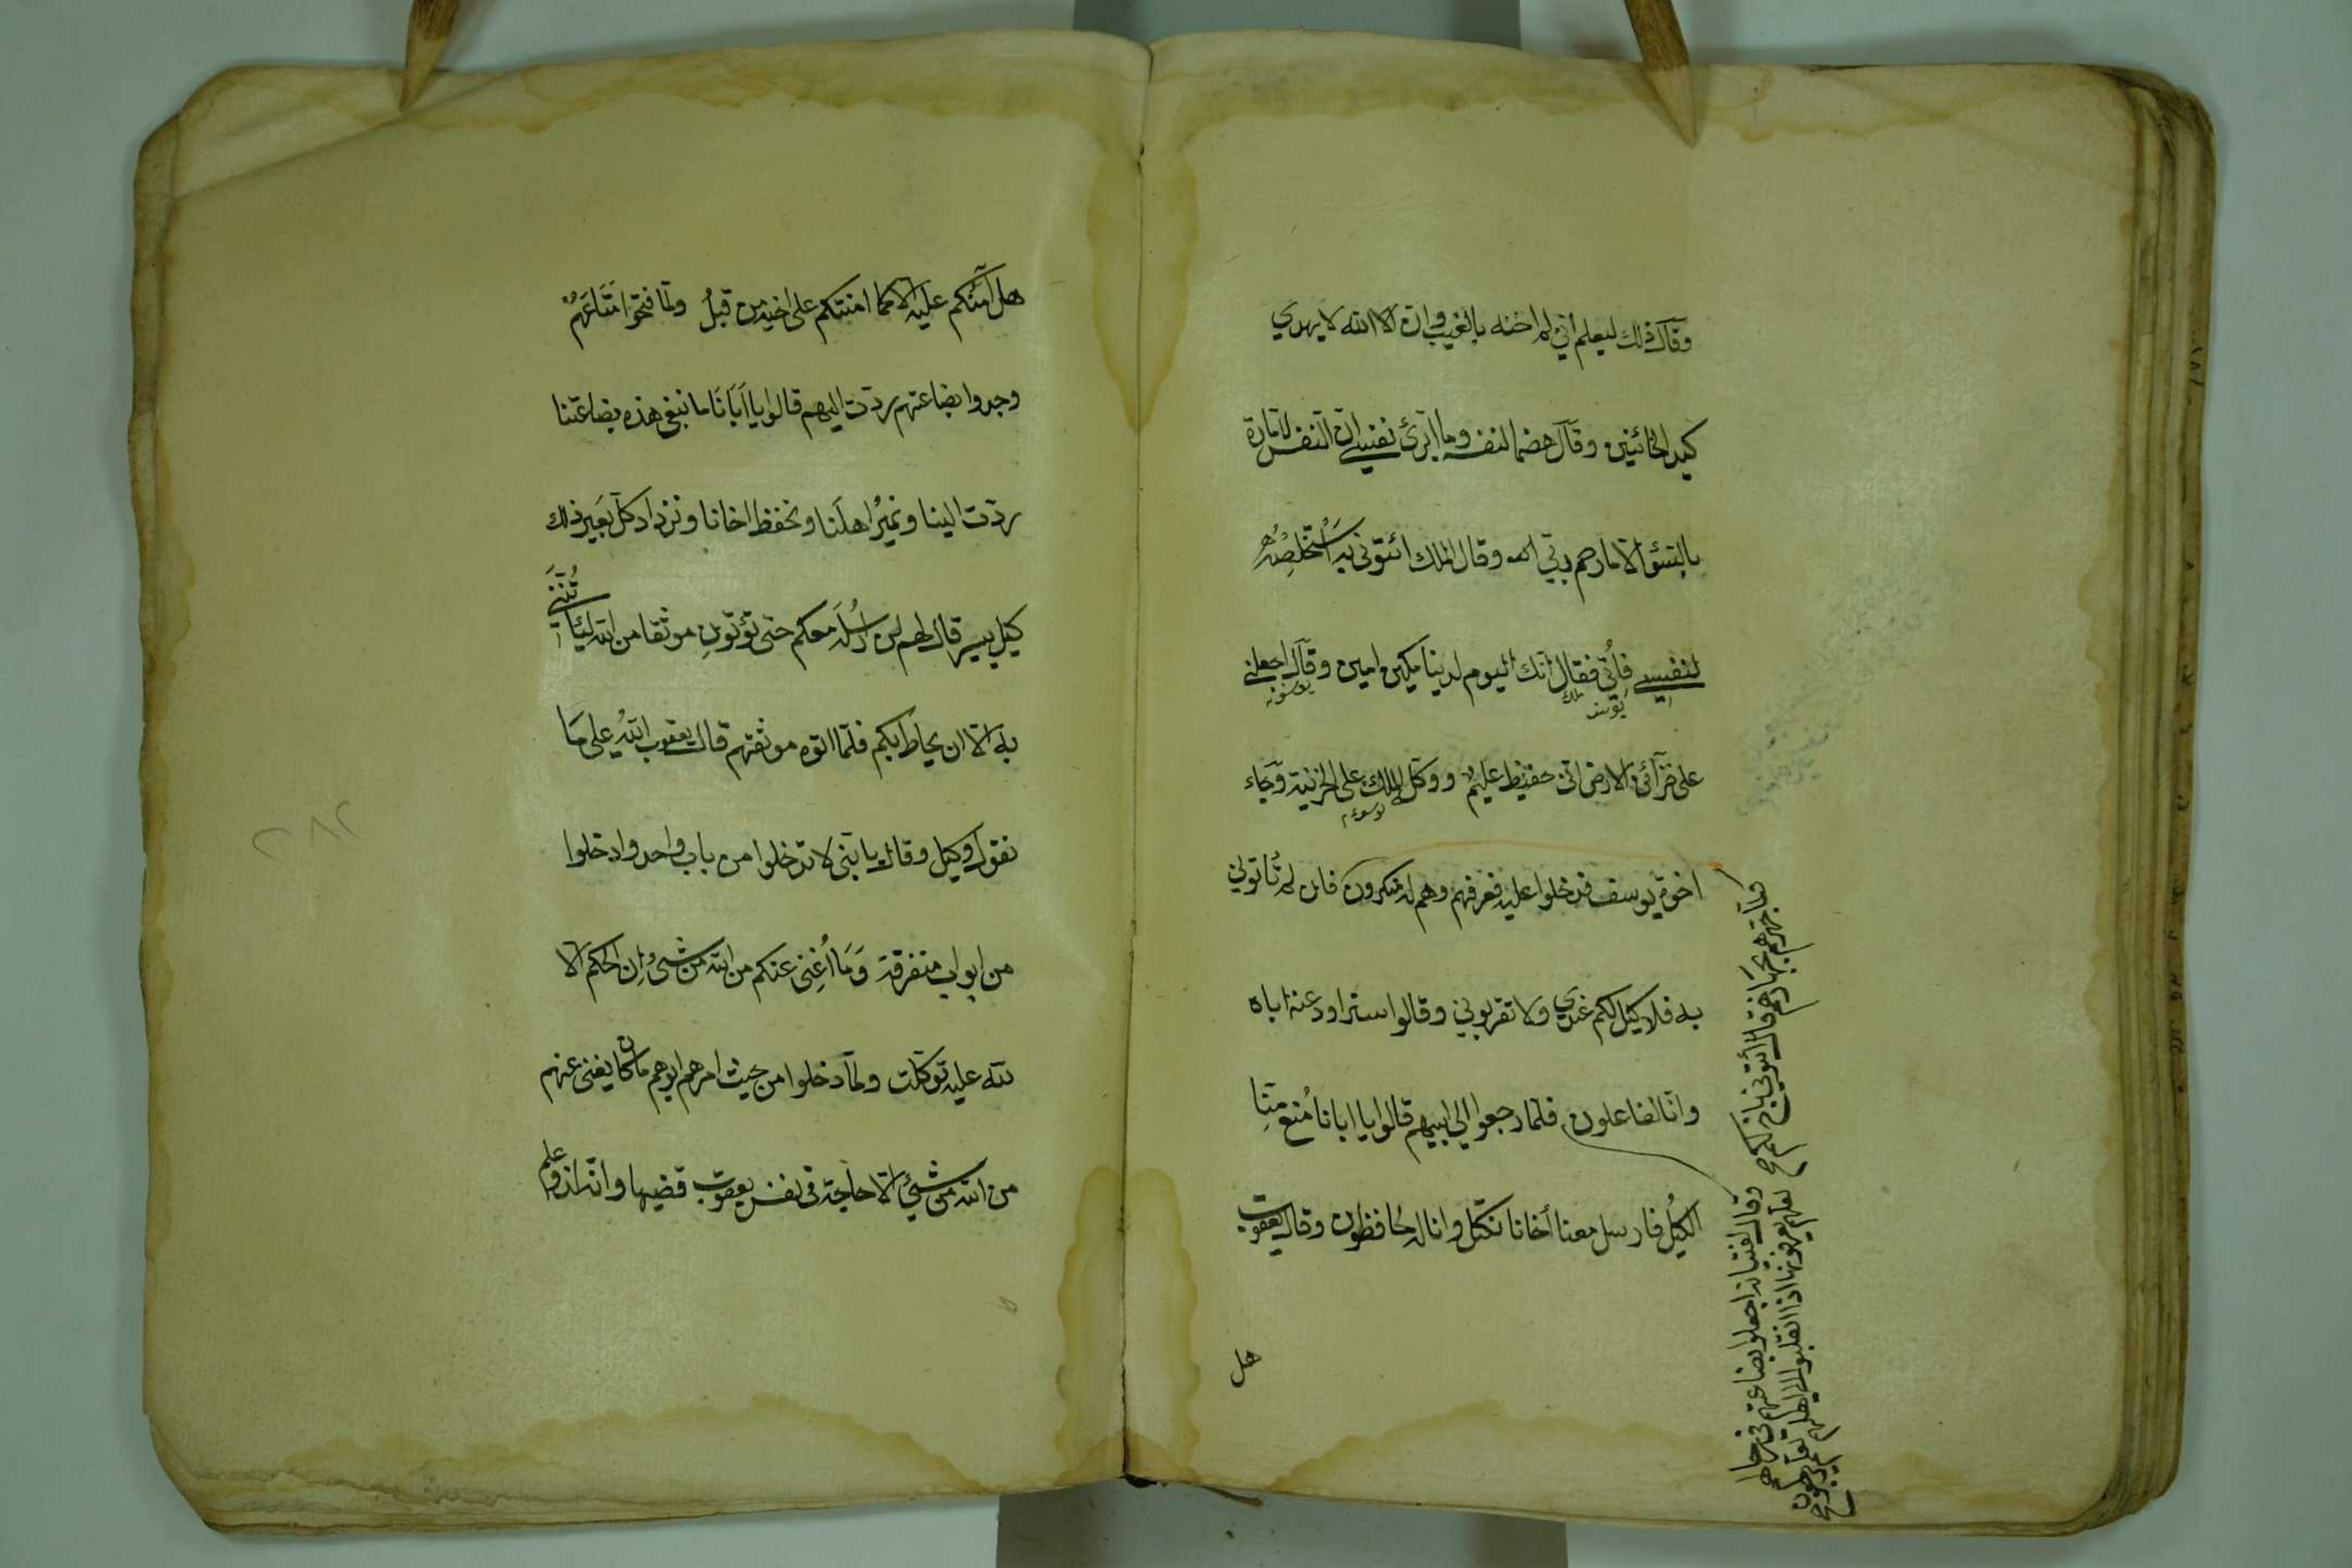 وقال ذلك ليعلم أني لم اخنه بالغيب وان الا الله لا يهدي
كيد الخائنين وقال هضما لنفسه وما ابرئ نفسي ان النفس لامارة
بالسؤ الا ما رحم ربي وقال الملك ائتوني به أَسْتَخْلِصْهُ
لنفسي فأُتي فقال انك اليوم لدينا مكين امين وقال اجعلني
يوسف ملك
على خزآئن الارض اني حفيظ عليم ووكل الملك على الخزنية وجاء
اخوة يوسف فدخلوا عليه فعرفهم وهم له منكرون فان لم تأتوني
به فلا كيل لكم عندي ولا تقربوني وقالوا سنراود عنه اباه
وانا لفاعلون فلما رجعوا الى ابيهم قالوا يا ابانا مُنع مِنّا
الكيلُ فارسل معنا أخانا نكتل وانا له لحافظون وقال يعقوب
هل
ولما جهزهم بجهازهم قال ائتوني باخ لكم
وقال لفتيانه اجعلوا بضاعتهم في رحالهم
لعلهم يعرفونها اذا انقلبوا الى اهلهم لعلهم يرجعون
هل آمَنُكم عليه الا كما امنتكم على اخيه من قبلُ ولما فتحوا مَتَاعَهُمْ
وجدوا بضاعتهم ردّت اليهم قالوا يا اَبَانَا ما نبغي هذه بضاعتنا
ردّت الينا ونميرُ اهلَنا ونحفظ اخانا ونزداد كل بَعير ذلك
كيل يسير قال لهم لن اُرسله معكم حتى تؤتونِ موثقا من الله لتأتُنَّني
به الا ان يحاط بكم فلما اتوه موثقهم قال يعقوب اللهُ على مَا
نقول وكيل وقال يا بَني لا تدخلوا من باب واحد وادخلوا
من ابواب متفرقة وَمَا اُغِني عنكم من الله من شئ إِن الحكم الا
لله عليه توكلت ولما دخلوا من حيث امرهم ابوهم ما كان يغني عنهم
من الله من شئ الا حاجة في نفس يعقوب قضيها وانه لذو علم
٢٨٢